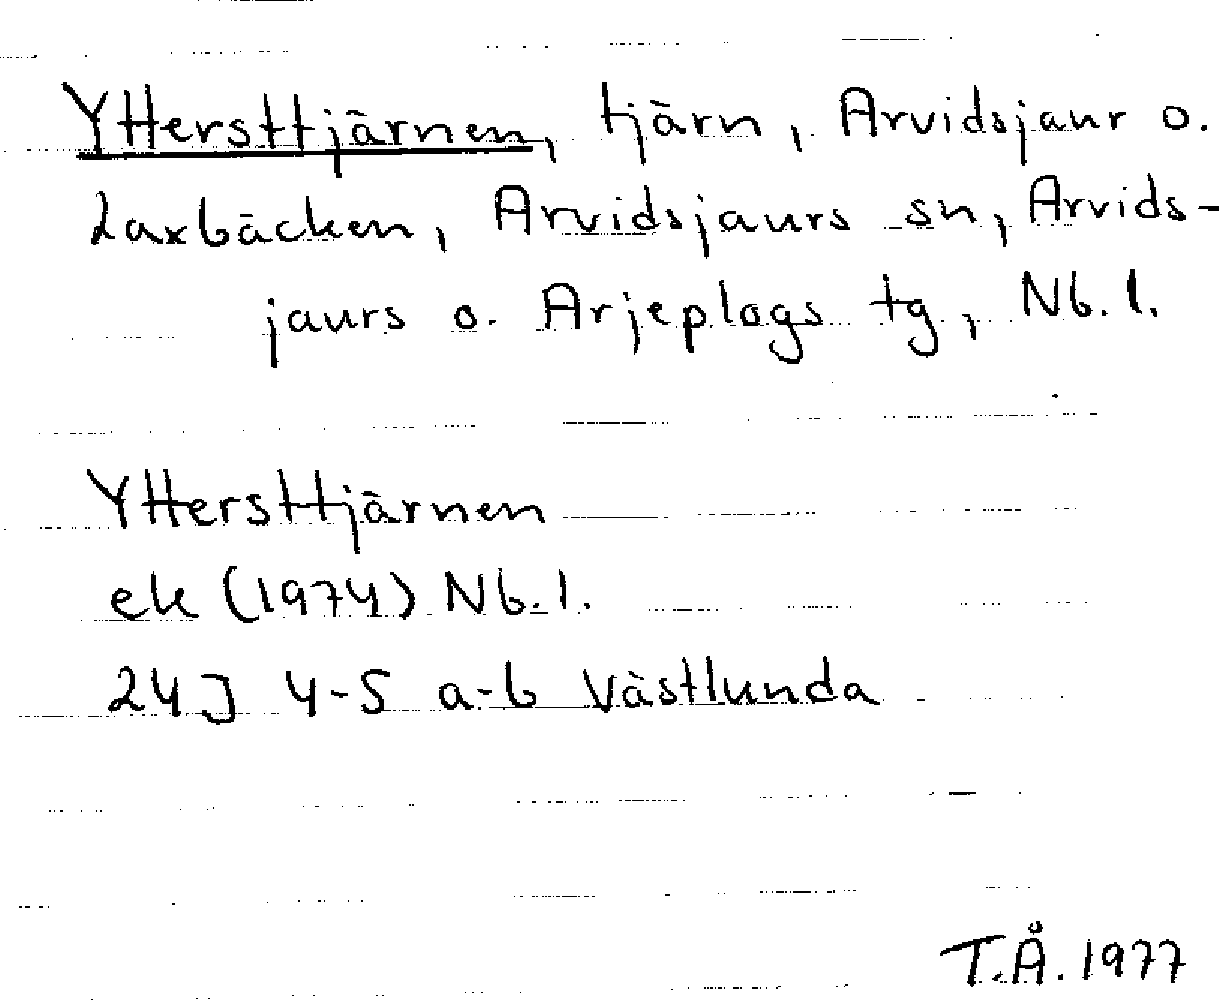 Yttersttjärnen, tjärn, Arvidsjaur o.
Laxbäcken, Arvidsjaurs sn, Arvids-
jaurs o. Arjeplogs tg, Nb. l.
Yttersttjärnen
ek (1974) Nb. l.
24J 4-5 a-b Västlunda
T.Å. 1977